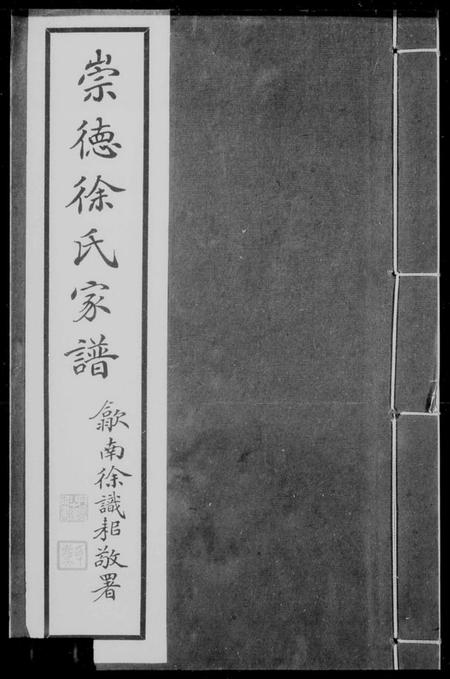 崇德徐氏家譜
歙南徐識耜敬署